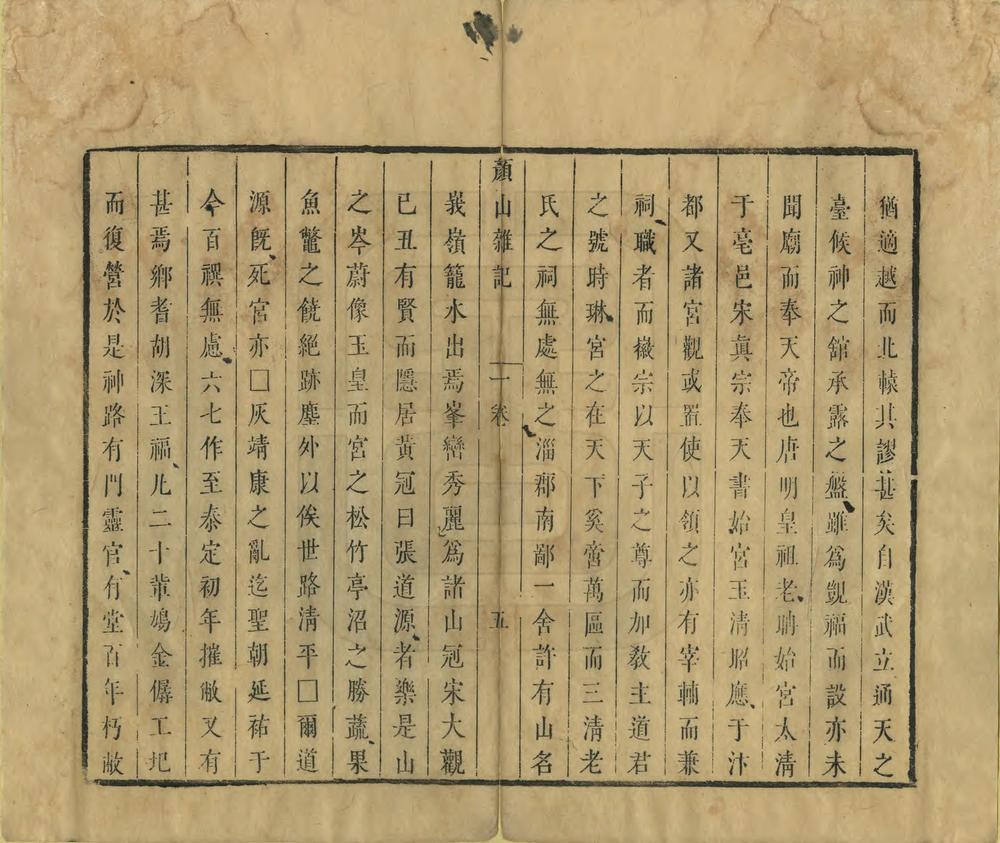 猶適越而北轅其謬甚矣自漢武立通天之
臺候神之館承露之盤雖爲覬福而設亦未
聞廟而奉天帝也唐明皇祖老聃始宮太清
于亳邑宋眞宗奉天書始宮玉清昭應于汴
都又諸宮觀或置使以領之亦有宰輔而兼
祠職者而徽宗以天子之尊而加敎主道君
之號時琳宮之在天下奚啻萬區而三清老
氏之祠無處無之淄郡南鄙一舍許有山名
顏山雜記 一卷 五
峩嶺籠水出焉峯巒秀麗爲諸山冠宋大觀
已丑有賢而隱居黃冠曰張道源者樂是山
之岑蔚像玉皇而宮之松竹亭沼之勝蔬果
魚鼈之饒絕跡塵外以俟世路清平□爾道
源旣死宮亦□灰靖康之亂迄聖朝延祐于
今百禩無慮六七作至泰定初年摧敝又有
甚焉鄉耆胡深王福凡二十輩鳩金僝工圯
而復營於是神路有門靈官有堂百年朽敝